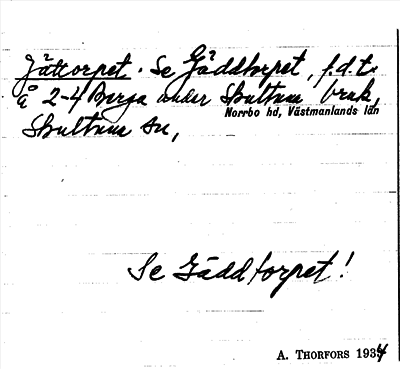 Jättorpet. Se Gäddtorpet, f.d.t.
å 2-4 Berga under Skultuna bruk,
Norrbo hd, Västmanlands län
Skultuna sn,
Se Gäddtorpet!
A. Thorfors 1934